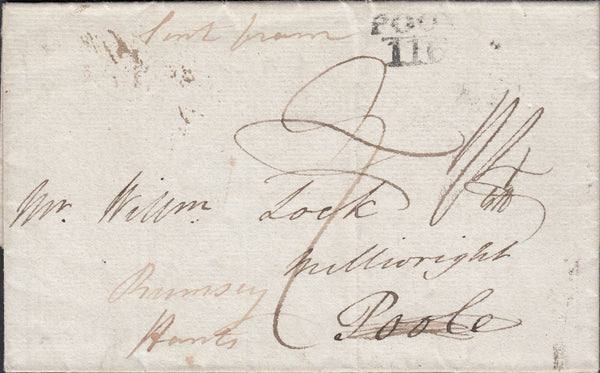 Sent from
POO
116
Mr. Willm Lock
Millwright
Poole
Rumsey
Hants